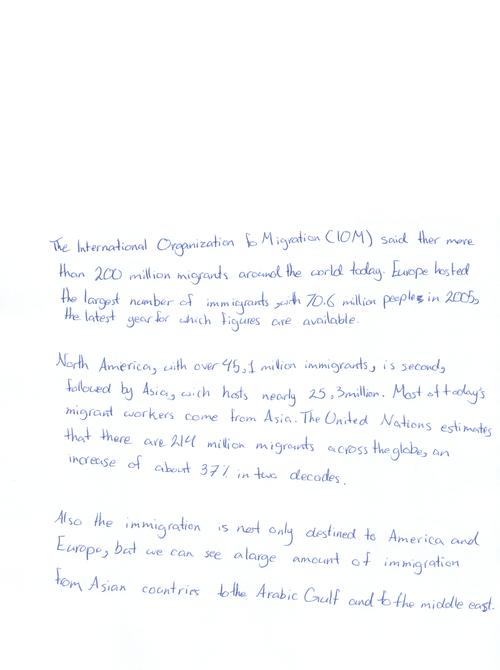 The International Organization fo Migration (IOM) said ther more
than 200 million migrants around the world today. Europe hosted
the largest number of immigrants, with 70.6 million people in 2005,
the latest year for which figures are available.
North America, with over 45,1 million immigrants, is second,
followed by Asia, wich hosts nearly 25,3million. Most of today's
migrant workers come from Asia. The United Nations estimates
that there are 214 million migrants across the globe, an
increase of about 37% in two decades.
Also the immigration is not only destined to America and
Europe, but we can see a large amount of immigration
from Asian countries to the Arabic Gulf and to the middle east.